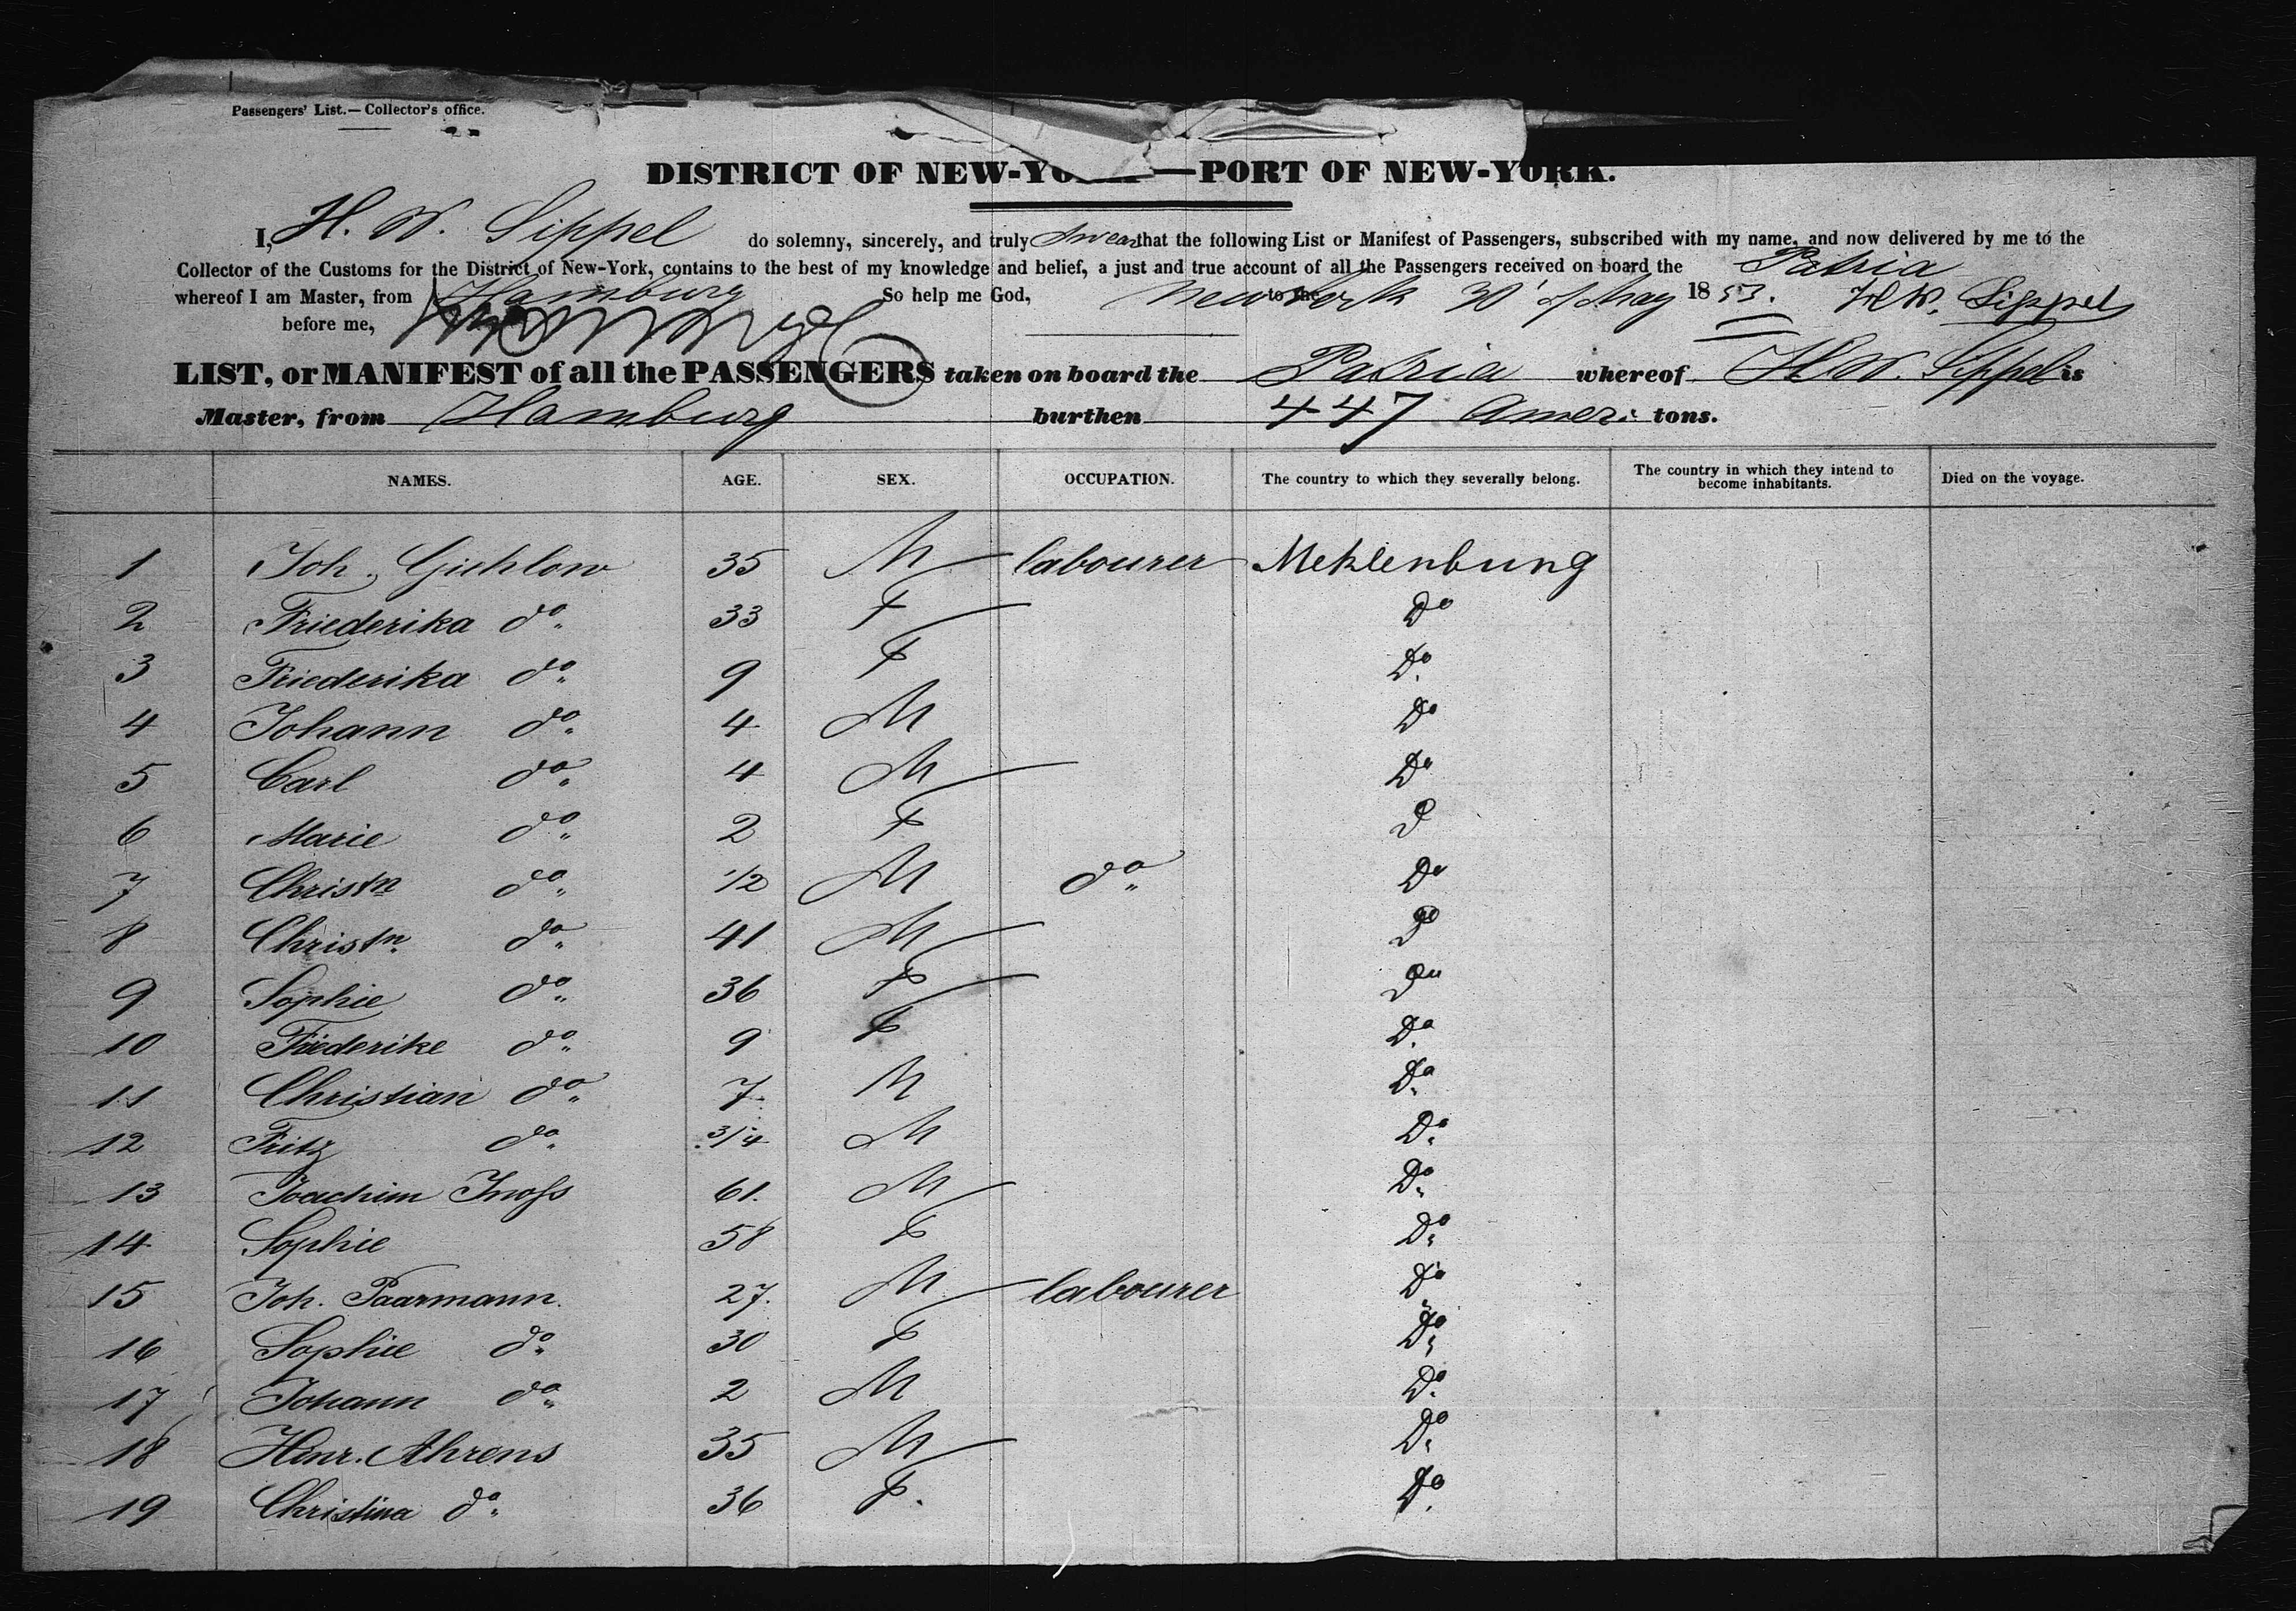 Passengers' List.—Collector's office.
DISTRICT OF NEW-YORK—PORT OF NEW-YORK.
I, H. W. Sippel do solemny, sincerely, and truly swear that the following List or Manifest of Passengers, subscribed with my name, and now delivered by me to the
Collector of the Customs for the District of New-York, contains to the best of my knowledge and belief, a just and true account of all the Passengers received on board the Patria
whereof I am Master, from Hamburg to the New York 30 of May 1853. H.W. Sippel
So help me God,
before me,
LIST, or MANIFEST of all the PASSENGERS taken on board the Patria whereof H.W. Sippel is
Master, from Hamburg burthen 447 Ameri. tons.
NAMES. AGE. SEX. OCCUPATION. The country to which they severally belong. The country in which they intend to become inhabitants. Died on the voyage.
1 Joh. Gichlow 35 M labourer Meklenburg
2 Friederika do 33 F Do
3 Friederika do 9 F Do
4 Johann do 4 M Do
5 Carl do 4 M Do
6 Marie do 2 F Do
7 Christn do 1/2 M do Do
8 Christn. do 41 M Do
9 Sophie do 36 F Do
10 Friederike do 9 F Do
11 Christian do 7 M Do
12 Fritz do 3/4 M Do
13 Joachim 61. M Do
14 Sophie 58 F Do
15 Joh. Paarmann. 27. M labourer Do
16 Sophie do 30 F Do
17 Johann do 2 M Do
18 Hinr. Ahrens 35 M Do
19 Christina do 36 F. Do